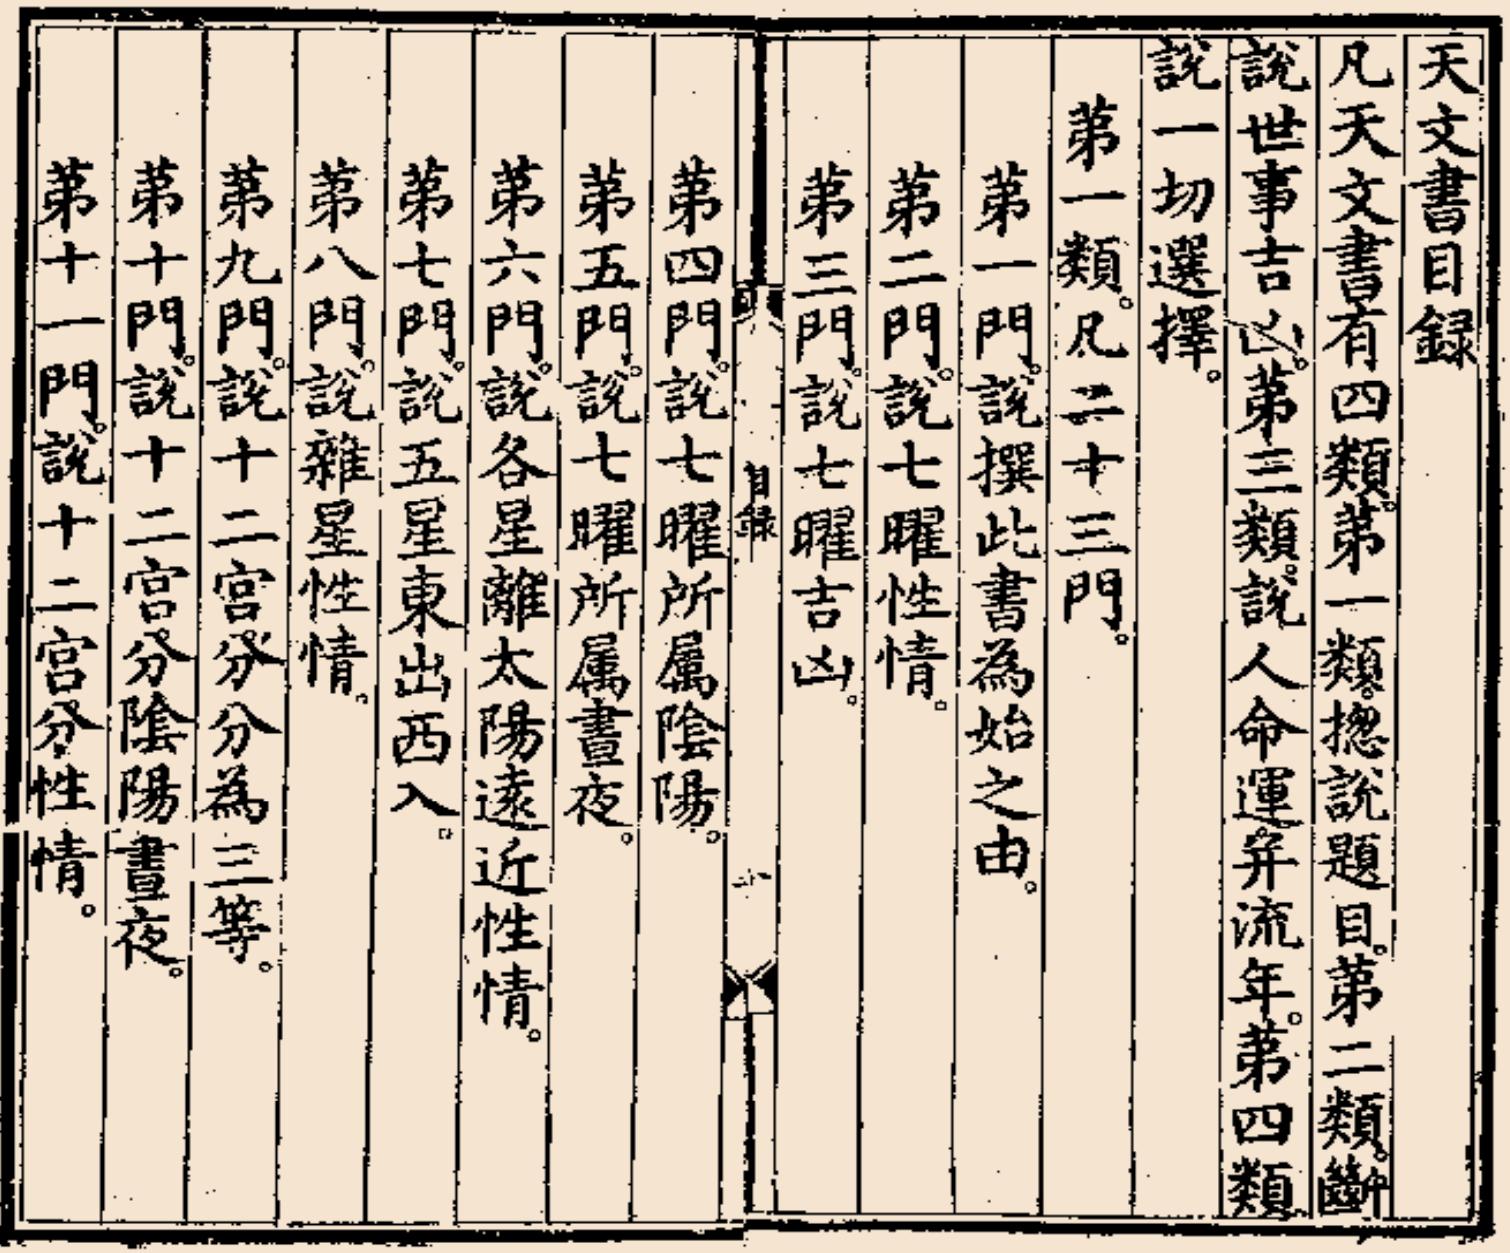 天文書目録
凡天文書有四類。第一類。揔說題目。第二類。斷
說世事吉凶。第三類。說人命運。并流年。第四類
說一切選擇。
第一類。凡二十三門。
第一門。說撰此書為始之由。
第二門。說七曜性情。
第三門。說七曜吉凶。
目録
第四門。說七曜所属陰陽。
第五門。說七曜所属晝夜。
第六門。說各星離太陽遠近性情。
第七門。說五星東出西入。
第八門。說雜星性情。
第九門。說十二宮分。分為三等。
第十門。說十二宮分。陰陽晝夜。
第十一門。說十二宮分。性情。